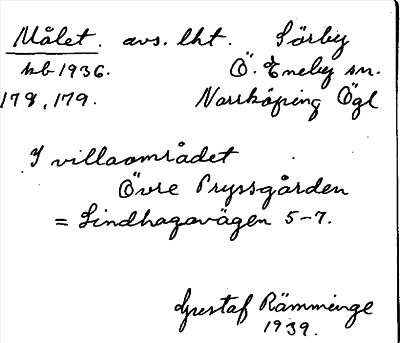 Målet. avs. lht. Sörby
nb 1936. Ö. Eneby sn.
178, 179. Norrköping Ögl
I villaområdet
Övre Pryssgården
= Lindhagavägen 5-7.
Gustaf Rämminge
1939.